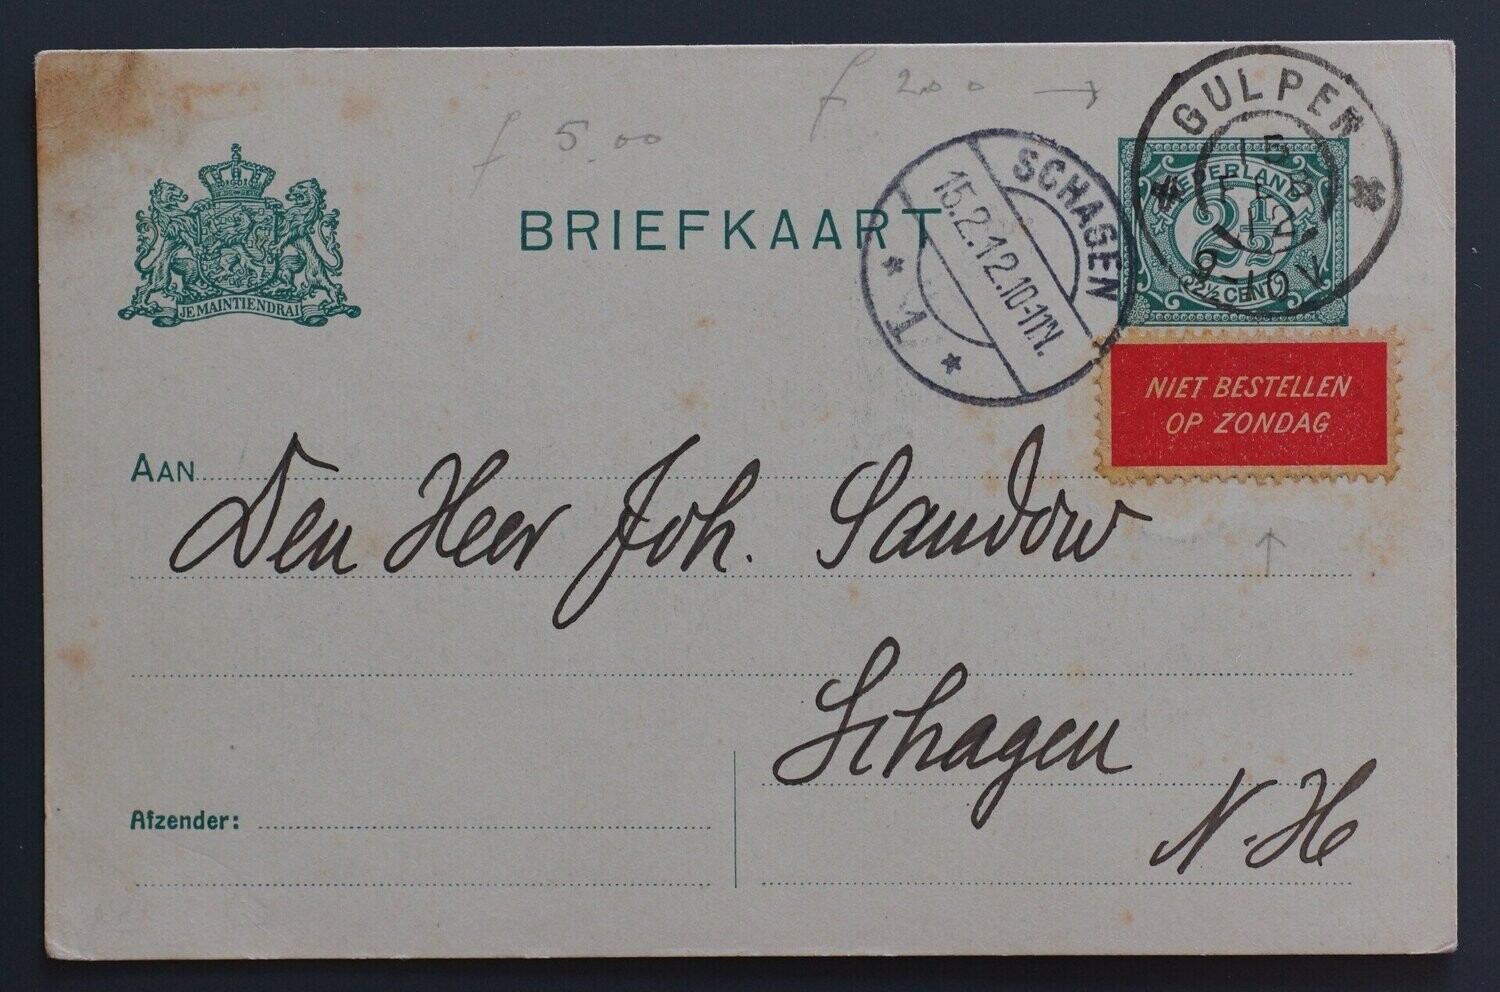 f 2.00 →
f 5.00
GULPEN
15
FEB
12
9-10V
NEDERLAND
2½
2½ CENT
SCHAGEN
15.2.12.10-11N.
* 1 *
JE MAINTIENDRAI
BRIEFKAART
NIET BESTELLEN
OP ZONDAG
AAN
Den Heer Joh. Sandow
Schagen
N.H
Afzender: